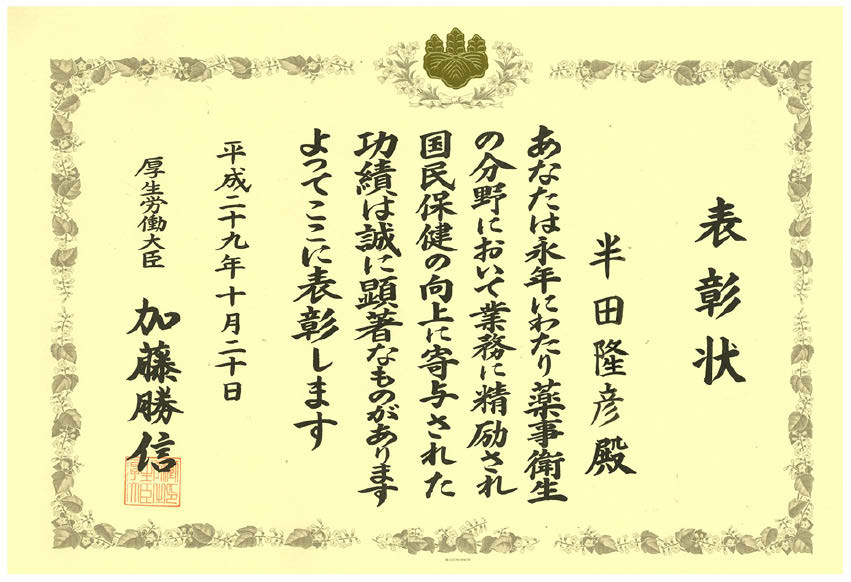 表彰状
半田隆彦殿
あなたは永年にわたり薬事衛生
の分野において業務に精励され
国民保健の向上に寄与された
功績は誠に顕著なものがあります
よってここに表彰します
平成二十九年十月二十日
厚生労働大臣 加藤勝信